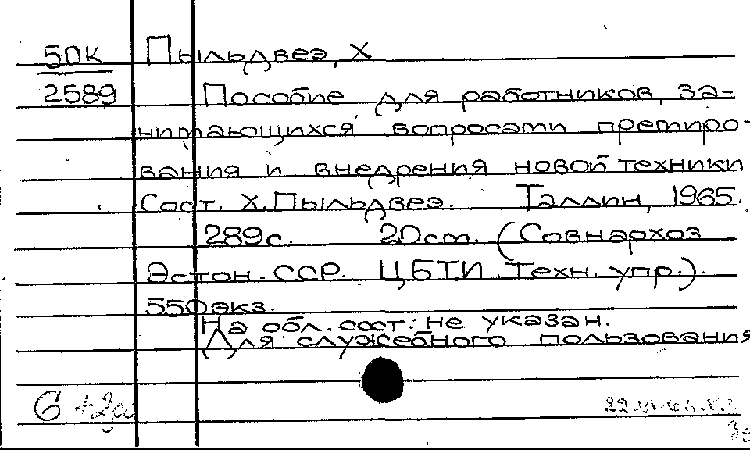 50К Пыльдвеэ, Х
2589 Пособие для работников, за-
нимающихся вопросами премиро-
вания и внедрения новой техники
Сост. Х.Пыльдвеэ. Таллин, 1965.
289с. 20см. (Совнархоз
Эстон. ССР. ЦБТИ. Техн. упр.).
550экз.
На обл. сост. не указан.
Для служебного пользования
6